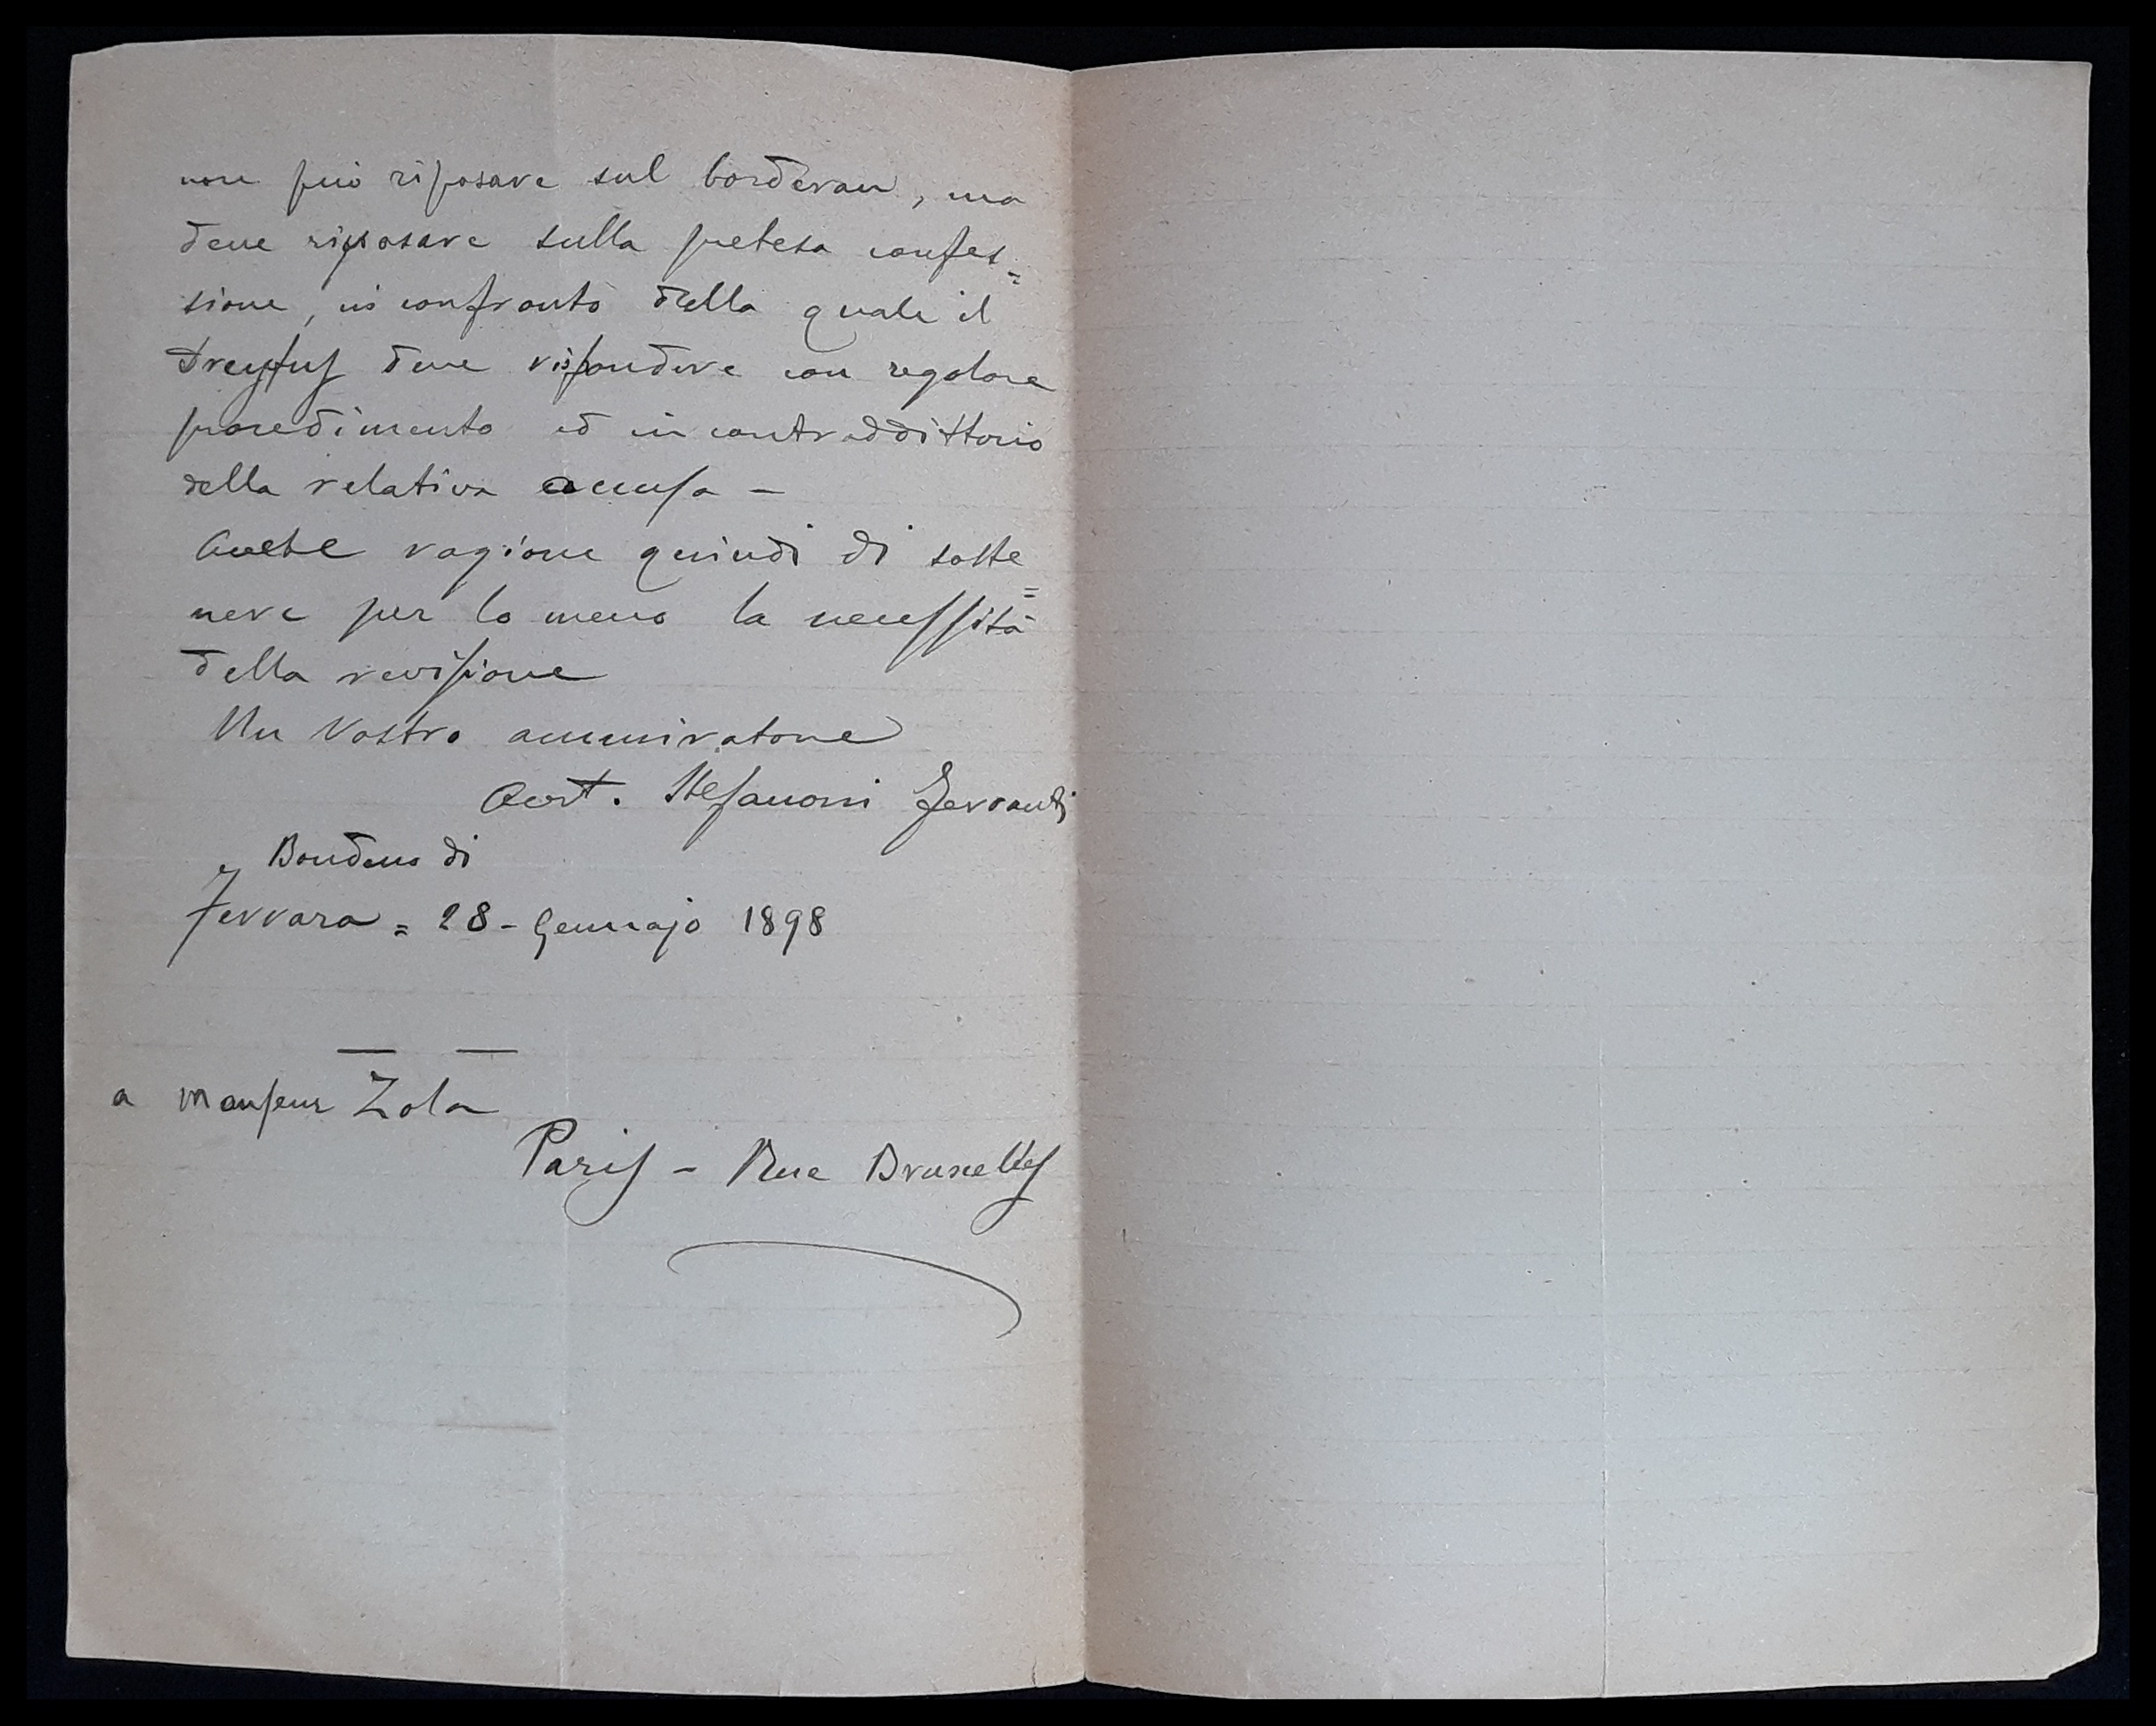 non può riposare sul borderau, ma
deve riposare sulla pretesa confes=
sione, in confronto della quale il
Dreyfus deve rispondere con regolare
procedimento ed in contraddittorio
della relativa accusa -
Avete ragione quindi di soste=
nere per lo meno la necessità
della revisione
Un Vostro ammiratore
Stefanoni Ferranti
Bondeno di
Ferrara = 28 - Gennajo 1898
a Monseur Zola
Paris - Rue Bruxelles